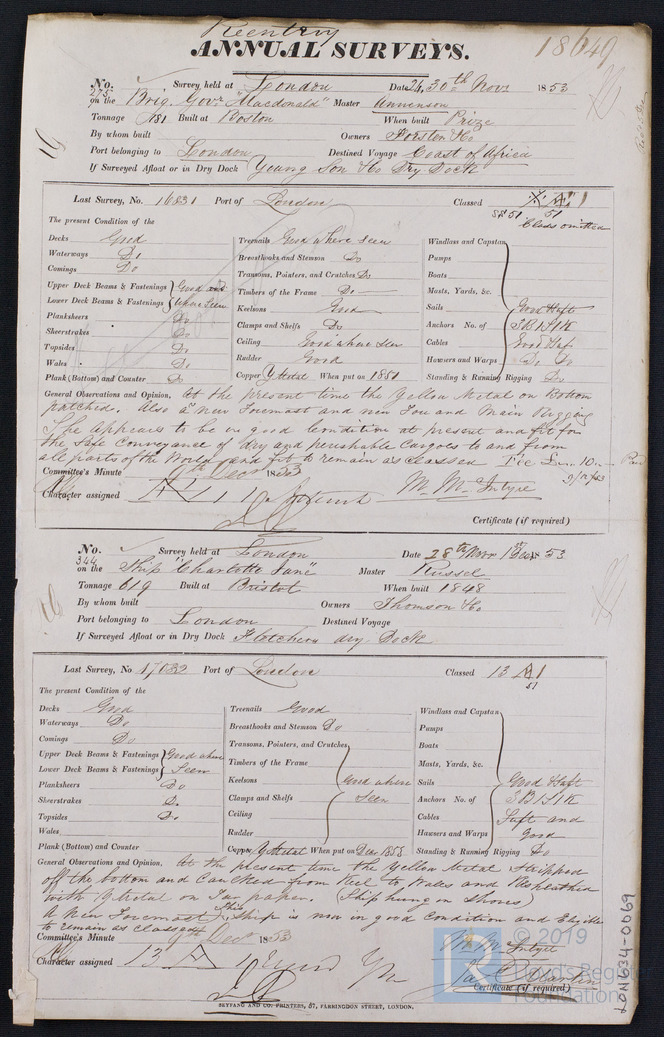 Reentry
ANNUAL SURVEYS.
18649
No. 275 Survey held at London Date 24, 30th Novr 1853
on the Brig. Govr "Macdonald" Master
Tonnage 181 Built at Boston When built Prize
By whom built Owners Forster & Co
Port belonging to London Destined Voyage Coast of Africa
If Surveyed Afloat or in Dry Dock Young Son & Co Dry Dock
Last Survey, No. 16831 Port of London Classed
51 Class omitted
The present Condition of the
Decks Good
Waterways Do.
Comings Do
Upper Deck Beams & Fastenings Good and
Lower Deck Beams & Fastenings where seen
Planksheers Do
Sheerstrakes Do
Topsides Do
Wales Do
Plank (Bottom) and Counter Do
Treenails Good where seen
Breasthooks and Stemson Do
Transoms, Pointers, and Crutches Do
Timbers of the Frame Do.
Keelsons Good
Clamps and Shelfs Do
Ceiling Good where seen
Rudder Good
Copper Y Metal When put on 1851
Windlass and Capstan
Pumps
Boats
Masts, Yards, &c.
Sails Good & Saft
Anchors No. of 3 B 1 S 1 K
Cables Good & Saf
Hawsers and Warps Do. Do
Standing & Running Rigging Do
General Observations and Opinion, At the present time the Yellow Metal on Bottom
patched. Also a new Foremast and new Fore and Main Rigging
She appears to be in good Condition at present and fit for
the safe Conveyance of dry and perishable Cargoes to and from
all parts of the World and fit to remain as classed Fee
Committee's Minute 9th Decr 1853
9/12/53
Character assigned
M. McIntyre
Certificate (if required)
No. 344 Survey held at London Date 28th Novr 1st Decr 1853
on the Ship "Charlotte Jane" Master Russel
Tonnage 619 Built at Bristol When built 1848
By whom built Owners Thomson & Co
Port belonging to London Destined Voyage
If Surveyed Afloat or in Dry Dock Fletchers dry Dock
Last Survey, No 17083 Port of London Classed 13 A 1
51
The present Condition of the
Decks Good
Waterways Do
Comings Do
Upper Deck Beams & Fastenings Good where
Lower Deck Beams & Fastenings Seen
Planksheers Do
Sheerstrakes Do.
Topsides Do
Wales
Plank (Bottom) and Counter
Treenails Good
Breasthooks and Stemson Do
Transoms, Pointers, and Crutches
Timbers of the Frame
Keelsons Good where
Clamps and Shelfs Seen
Ceiling
Rudder
Copper Y Metal When put on Decr 1853
Windlass and Capstan
Pumps
Boats
Masts, Yards, &c.
Sails Good & Saft
Anchors No. of 3 B 1 S 1 K
Cables Saft and
Hawsers and Warps Good
Standing & Running Rigging Do
General Observations and Opinion, At the present time the Yellow Metal stripped
off the bottom and Caulked from Keel to Wales and Resheathed
with Y Metal on Tar paper. (Ship hung in Shores)
A New Foremast, This Ship is now in good Condition and Eligible
to remain as classed
Committee's Minute 9th Decr 1853
Character assigned 13 A 1
M. McIntyre
Jas Martin
Certificate (if required)
SKYFANG AND CO. PRINTERS, 57, FARRINGDON STREET, LONDON.
LON634-0069
© 2019
Lloyd's Register
Foundation